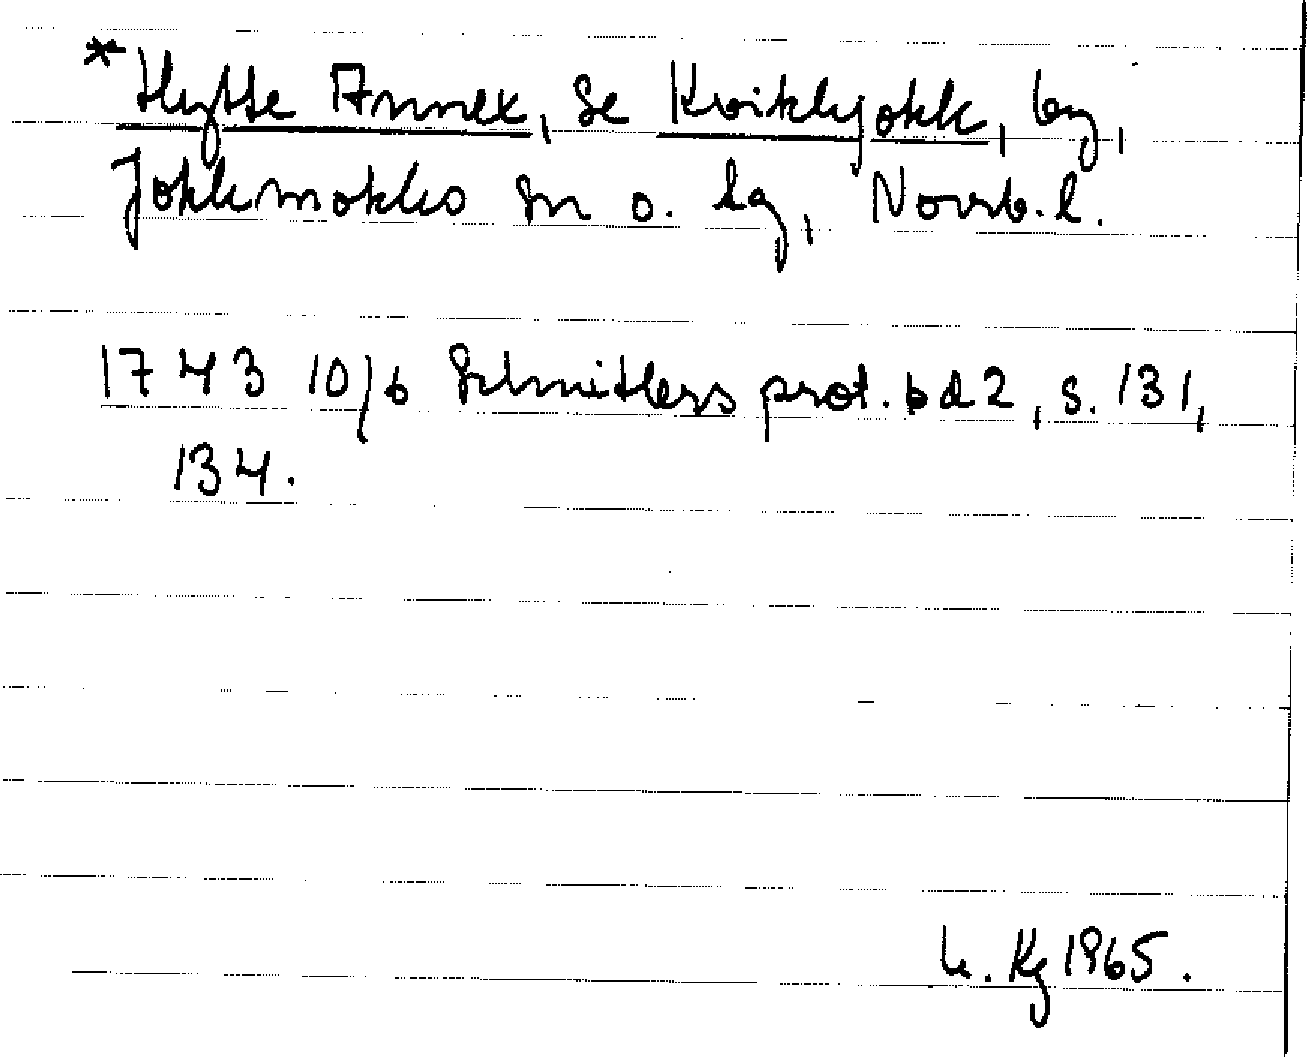 *Hytte Annex, se Kvikkjokk, by,
Jokkmokks sn o. lg, Norrb. l.
1743 10/6 Schnitlers prot. bd 2, s. 131,
134.
Kg 1965.